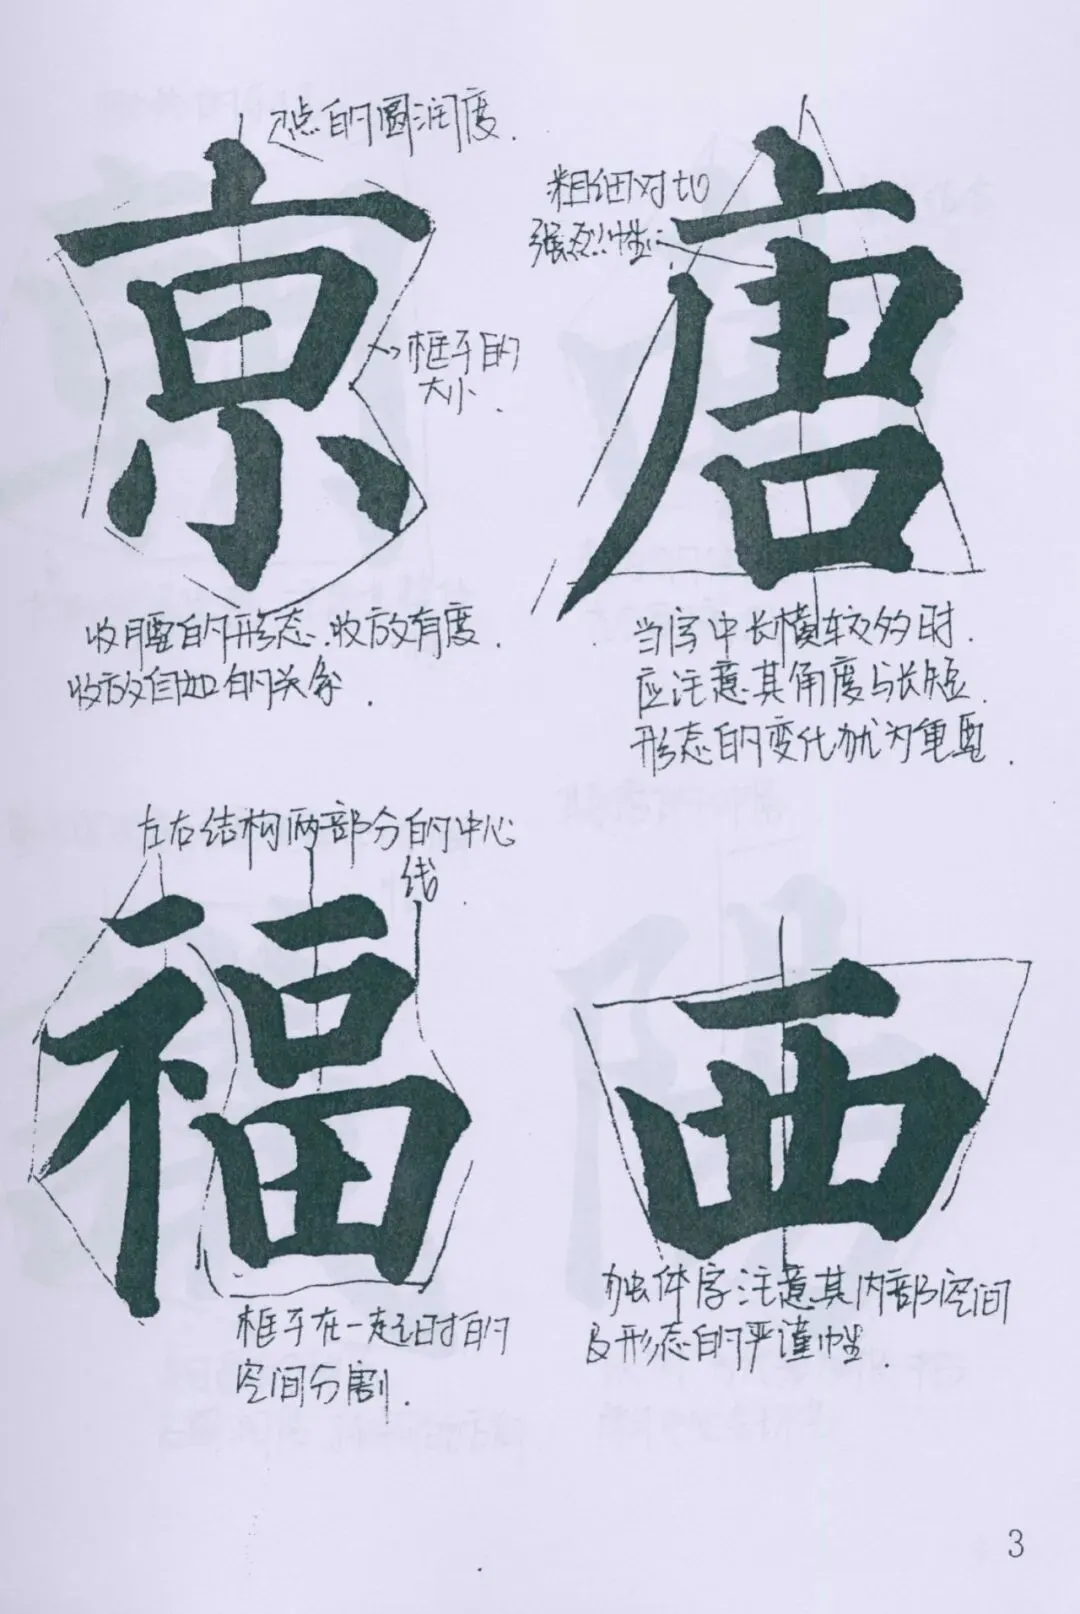 点的圆润度.
京
框子的
大小.
收腰的形态.收放有度.
收放自如的关系.
粗细对比
强烈性.
唐
当字中长横较多时.
应注意其角度与长短.
形态的变化尤为重要.
左右结构两部分的中心
线.
福
框子在一起时的
空间分割.
西
独体字注意其内部空间
及形态的严谨性.
3